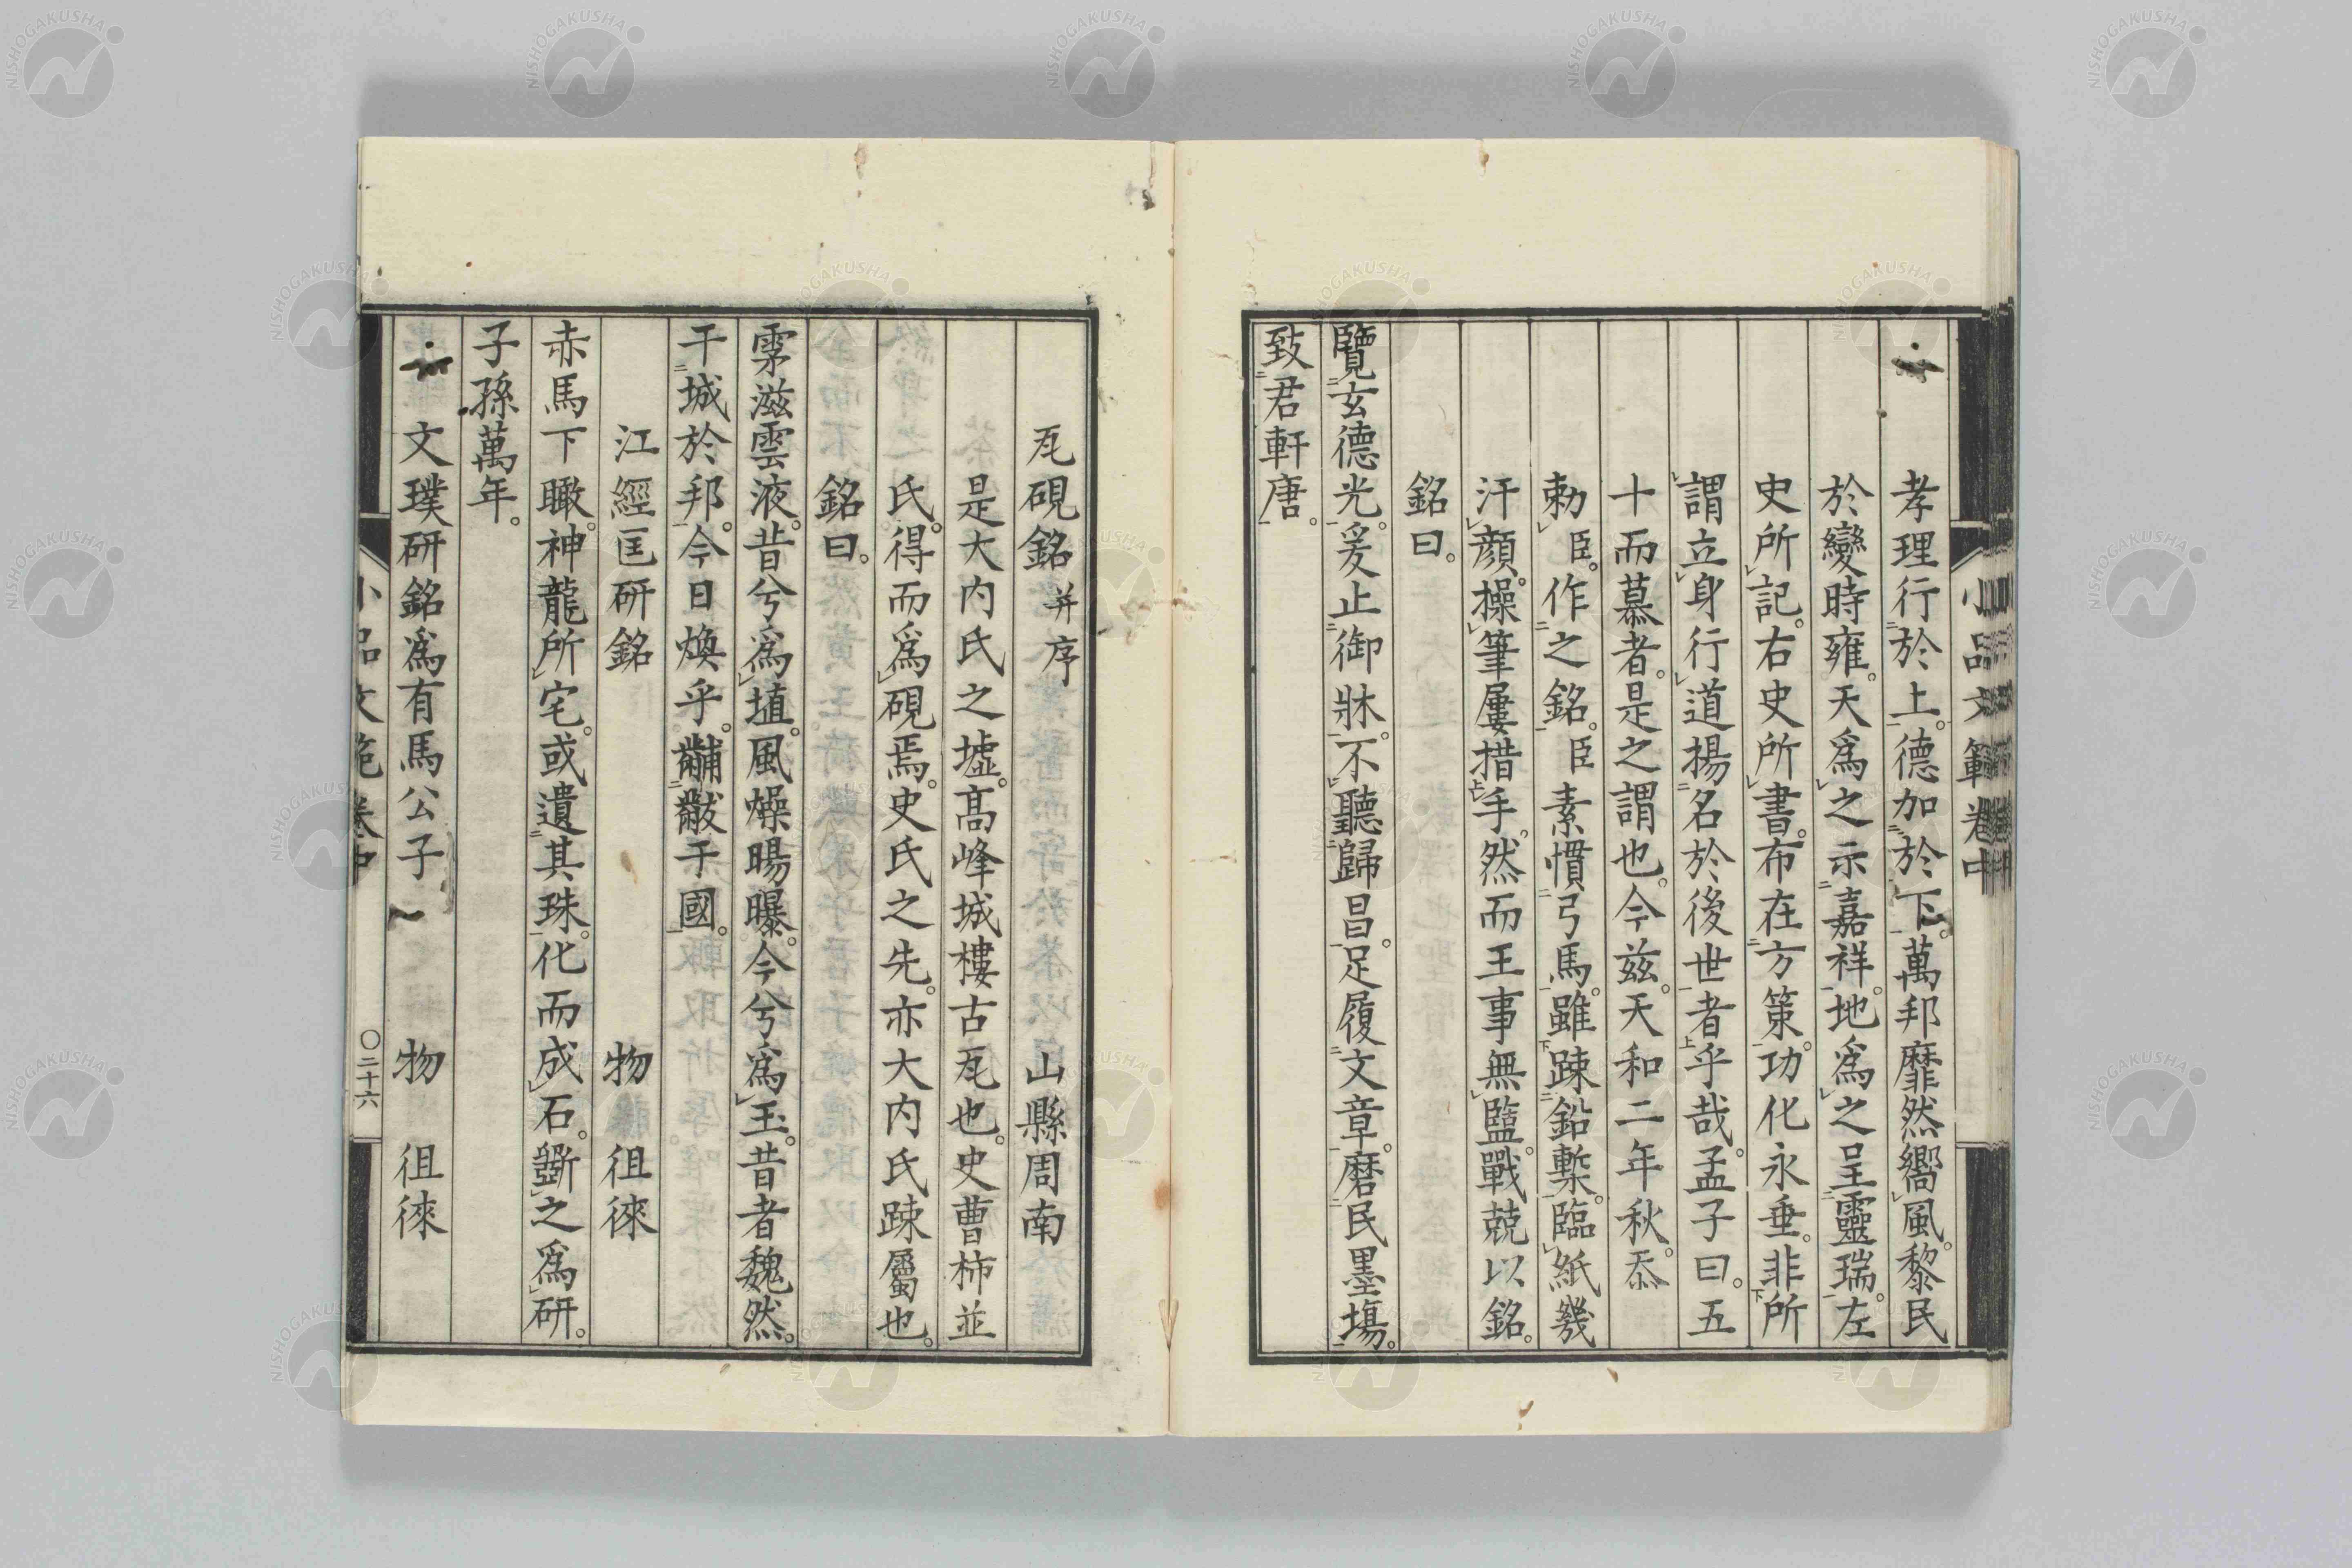 小品文範卷中
孝理行於上。德加於下。萬邦靡然嚮風。黎民
於變時雍。天爲之示嘉祥。地爲之呈靈瑞。左
史所記。右史所書。布在方策。功化永垂。非所
謂立身行道揚名於後世者乎哉。孟子曰。五
十而慕者。是之謂也。今茲。天和二年秋。忝
勅臣。作之銘。臣素慣弓馬。雖踈鉛槧。臨紙幾
汗顏。操筆屢措手。然而王事無盬。戰兢以銘。
銘曰。
覽玄德光。爰止御牀。不聽歸昌。足履文章。磨民墨塲。
致君軒唐。
瓦硯銘 并序 山縣周南
是大内氏之墟。高峰城樓古瓦也。史曹柿並
氏。得而爲硯焉。史氏之先。亦大内氏踈屬也。
銘曰。
雺滋雲液。昔兮爲埴。風燥暘曝。今兮爲玉。昔者魏然。
干城於邦。今日煥乎。黼黻于國。
江經匡研銘 物 徂徠
赤馬下瞰。神龍所宅。或遺其珠。化而成石。斲之爲研。
子孫萬年。
文璞研銘爲有馬公子 物 徂徠
小品文範卷中 〇二十六
NISHOGAKUSHA